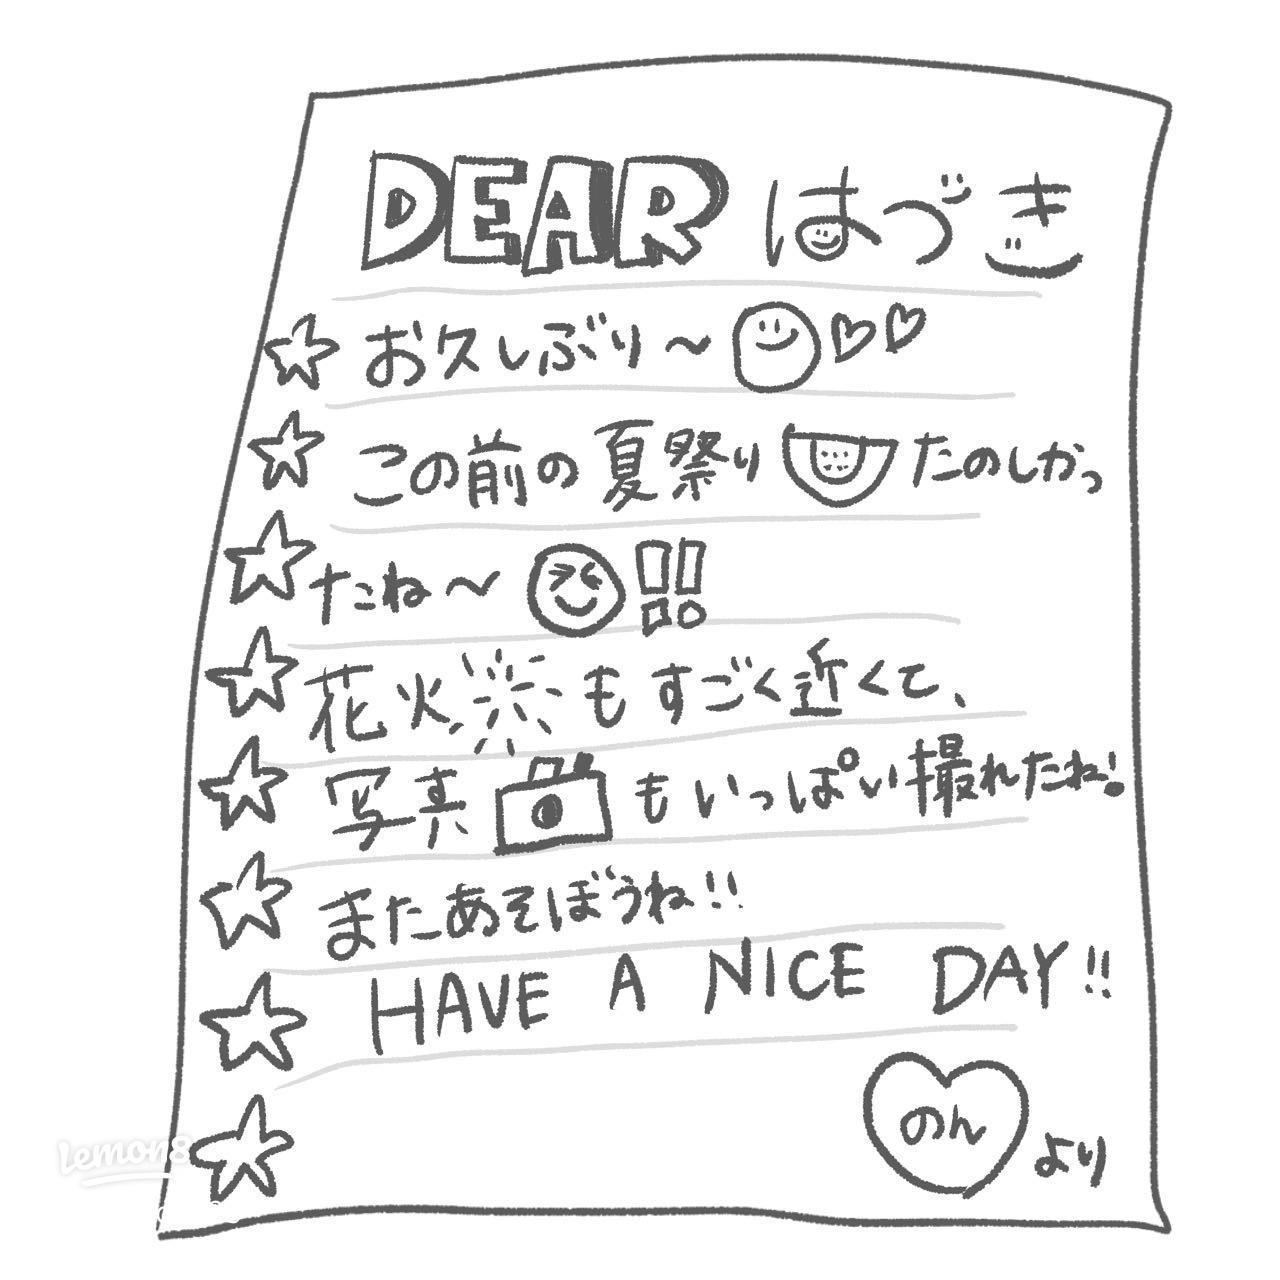 DEAR はづき
お久しぶり〜
この前の夏祭りたのしかっ
たね〜!!
花火もすごく近くて、
写真もいっぱい撮れたね!
またあそぼうね!!
HAVE A NICE DAY!!
のんより
Lemon8